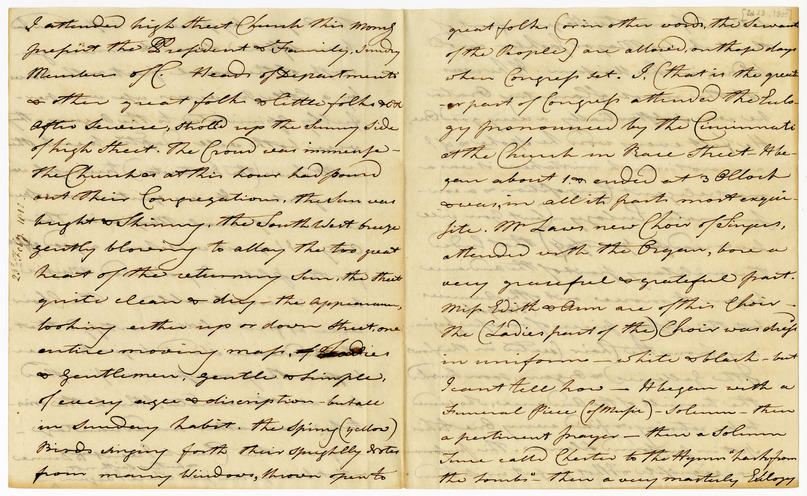 I attended high Street Church this morng
present the President & Family, sundry
Members of C. Heads of Departments
& other great folks & little folks &c &c
After Service, strolld up the Sunny Side
of high Street. The Croud was immense –
the Churches at this hour had pourd
out their Congregations, the Sun was
bright & Shinny, the South West breeze
gently blowing to allay the too great
heat of the returning Sun, the street
quite clean & dry – the appearance,
looking either up or down Street, one
entire moving mass, of Ladies
& Gentlemen, gentle & simple,
of every age & discription – but all
in Sunday habit. the spring (yellow)
Birds singing forth their sprightly Notes
from many Windows, thrown open to
great folks (or in other words, the Servants
of the People) are allowed, on those days
when Congress set. I (that is the great-
-er part of Congress attended the Eulo
gy pronounced by the Cincinnati
at the Church in Race Street – It be-
gan about 1 & ended at 3 OClock
& was, in all its parts most exqui-
site. Mr Laws new Choir of Singers,
attended with the Organ, bore a
very graceful & grateful part.
Miss Edith & Ann are of this Choir –
the (Ladies part of the) Choir was dress
in uniform – white & black – but
I cant tell how – It began with a
Funeral Piece (of Music) – Solemn – then
a pertinent prayer – then a Solemn
Tune called Chester to the Hymn "hark from
the tombs" – then a very masterly Eulogy